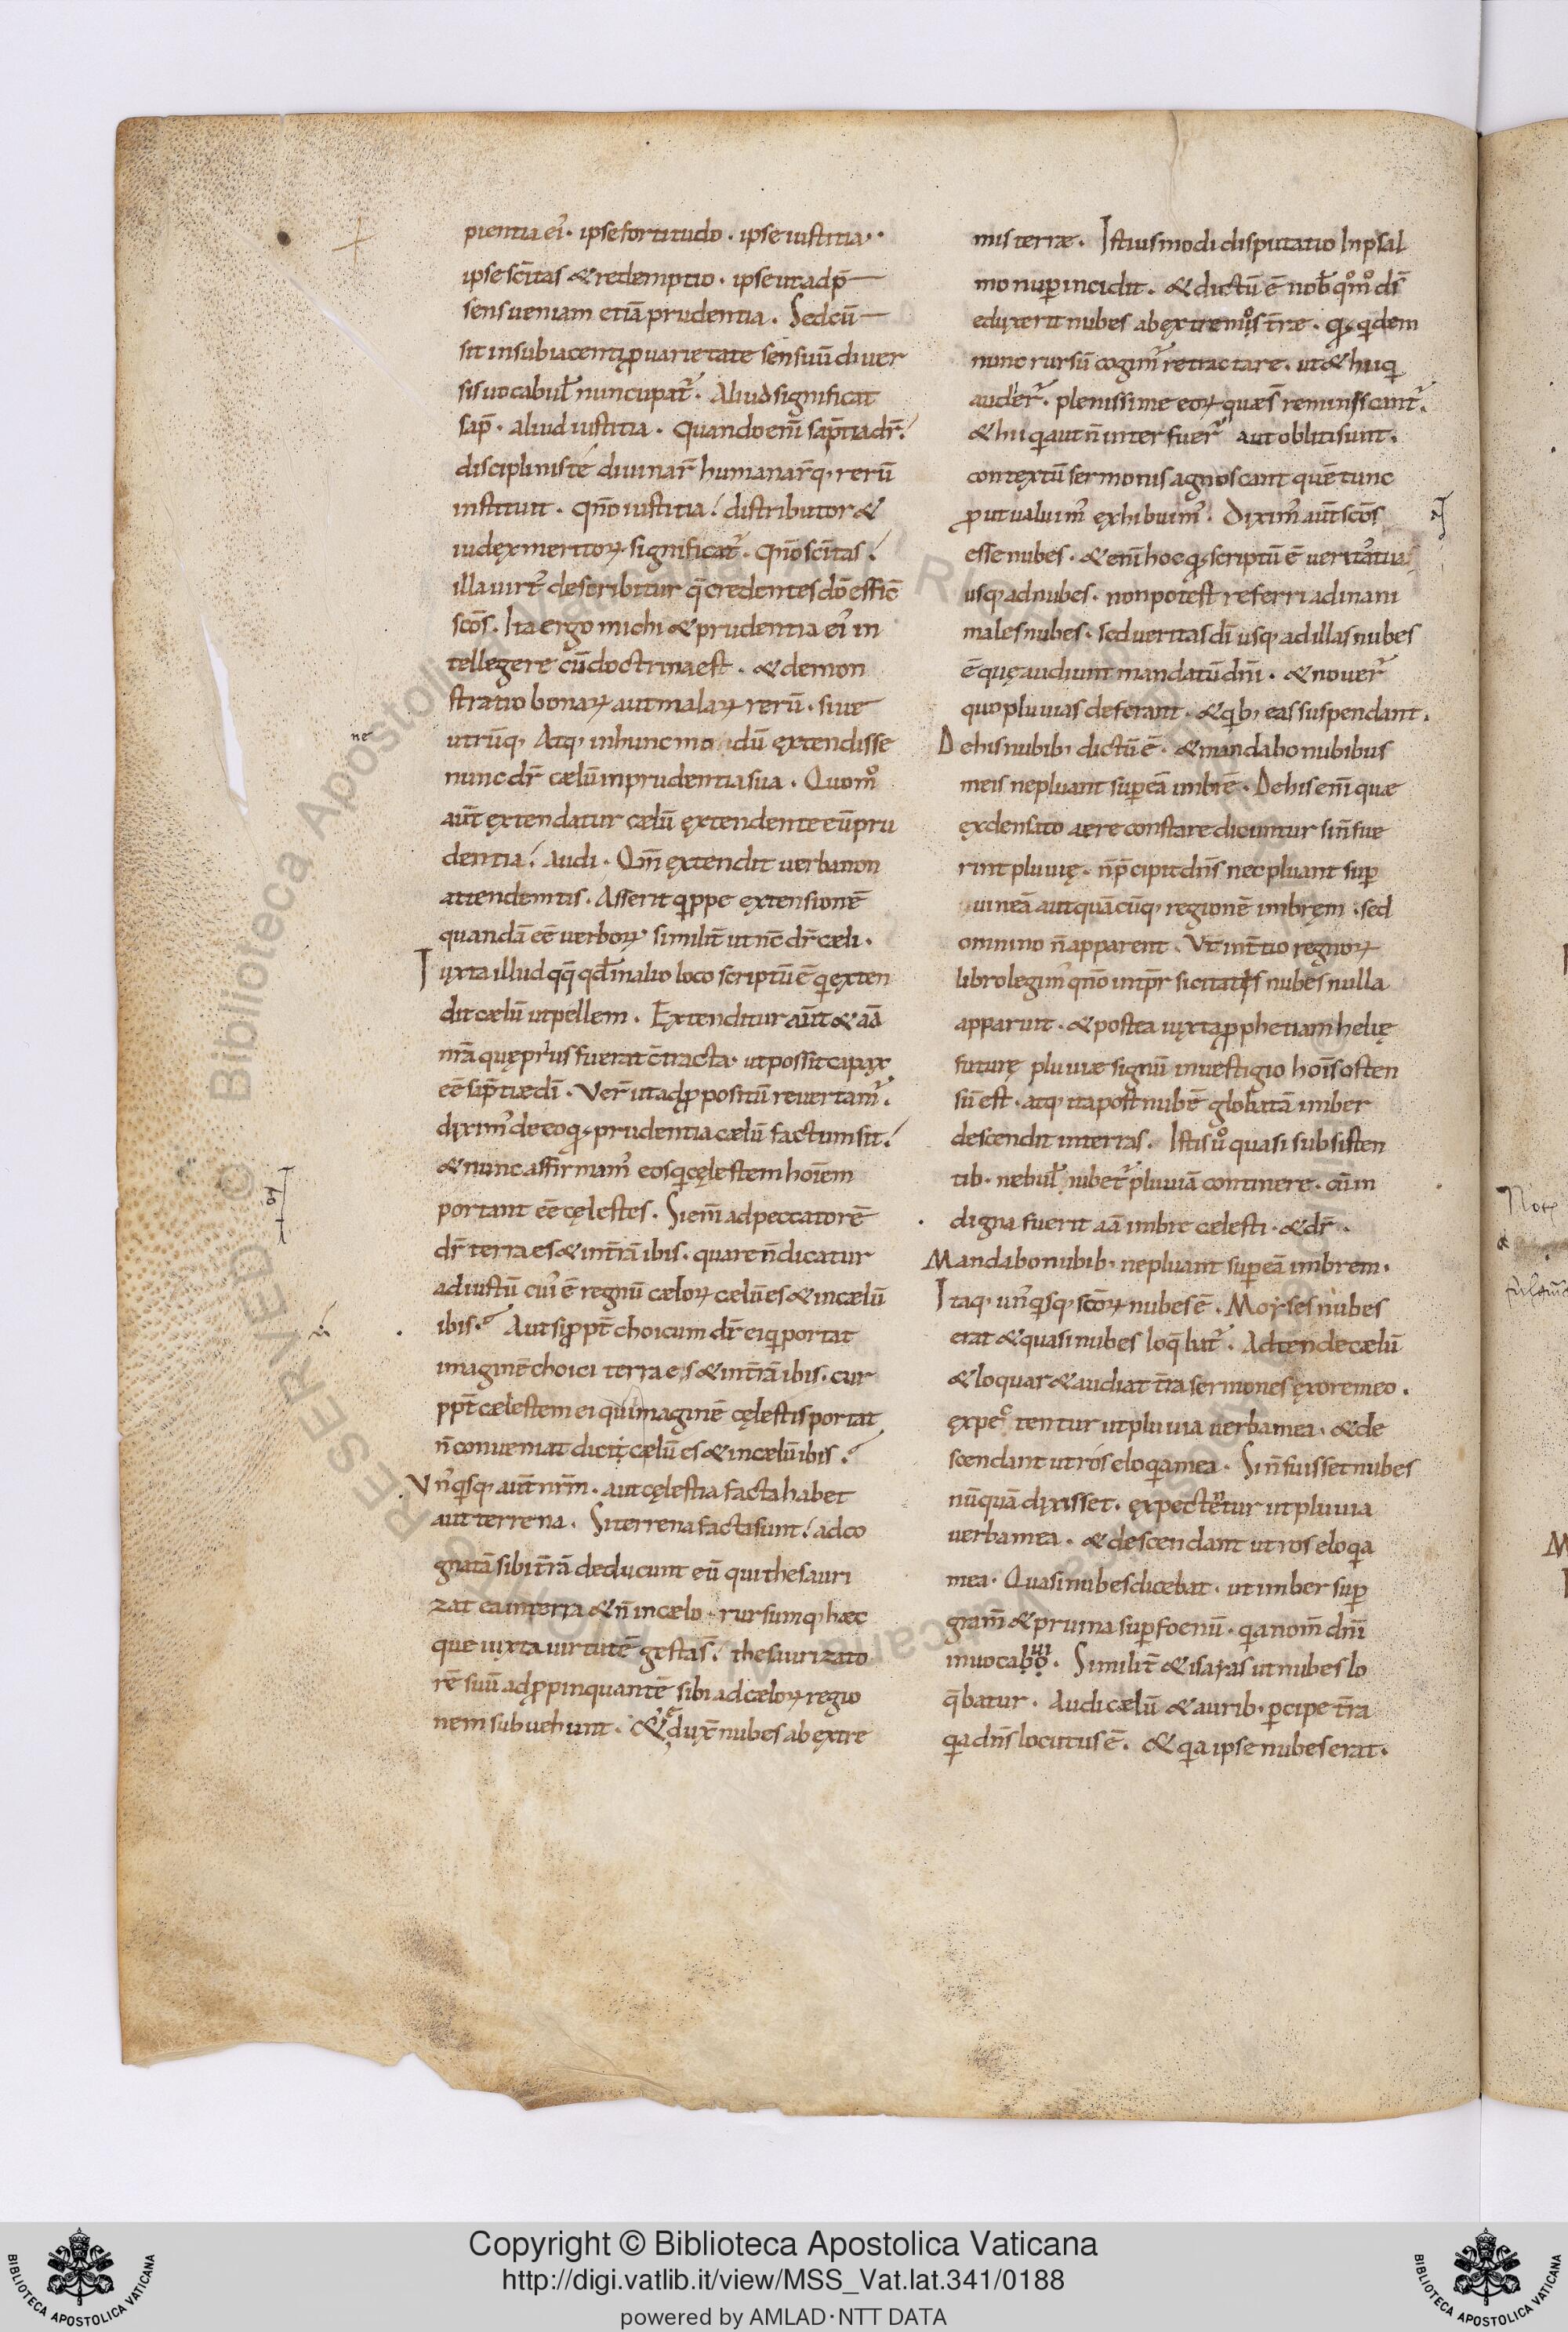 pientia ei᾽· ipse fortitudo · ipse iustitia ·
ipse scītas & redemptio · ipse ut ad p̄
sens ueniam etiā prudentia . Sed cū
sit in subiacenti ꝓ uarietate sensuū diuer
sis uocabul̄ nuncupat᷑ . Aliud significat
sap̄ · aliud iustitia · quando eni᷑ sap̄tia dr̄ ·
disciplinis te᷑ diuinar̄ humanar̄q; rerū
instituit · qn̄o iustitia / distributor &
iudex meritoꝝ significat᷑ · qn̄o scītas /
illa uirt᷑ describitur q̄ credentes dō effic̄
scōs . Ita ergo michi & prudentia ei᾽ in
tellegere cū doctrina est . & demon
stratio bonaꝝ aut malaꝝ rerū · siue
utrūq; Atq; in hunc mo dū extendisse
nunc dr̄ cælū in prudentia sua . Quom̊
aūt extendatur cælū extendente eū pru
dentia / audi . Qm̄ extendit uerba non
attendentis . Asserit qippe ęxtensionē
quandā eē uerboꝝ similit̄ ut nc̄ dr̄ cæli .
Iuxta illud qq̄ qd̄ in alio loco scriptū ē qi exten
dit cælū ut pellem . Extenditur aūt & aā
nr̄a quę pri᾽us fuerat c̄tracta · ut possit capax
eē sap̄tiæ dī . Ver᷑ ut ad ꝓpositū reuertam᷑ .
dixim᾽ de eo qꝫ prudentia cælū factum sit /
& nunc affirmam᾽ eos qi cęlestem hoīem
portant eē cęlestes . Si eni᷑ ad peccatorē
dr̄ terra es & in t̄rā ibis . quare n̄ dicatur
ad iustū cui᾽ ē regnū cæloꝝ cælū es & in cælū
ibis . Aut si ꝓpt̄ choicum dr̄ ei qi portat
imaginē choici terra es & in t̄rā ibis . cur
ppt̄ cælestem ei qui imaginē cęlestis portat
n̄ conueniat dici cælū es & in cælū ibis .
Vn᾽qisq; aūt nr̄m · aut cęlestia facta habet
aut terrena . Si terrena facta sunt / ad co
gnatā sibi t̄rā deducunt eū qui thesauri
zat ea in terra & n̄ in cælo . rursumq; hæc
que iuxta uirtutē gestas̄ / thesaurizato
rē suū adꝓpinquantē sibi ad cæloꝝ regio
nem subuehunt . & eduxi᷑ nubes ab extre
mis terræ . Istiusmodi disputatio In psal
mo nuꝑ incidit . & dictū ē nob̄ qm̊o dī᾽
eduxerit nubes ab ęxtremo t̄ræ · qꝫ qidem
nunc rursū cogim᷑ retractare . ut & hii qi
audier᷑ · plenissime eoꝝ quæ s̄ reminiscant᷑ .
& hii qi aut n̄ interfuer᷑ aut obliti sunt .
contextū sermonis agnoscant quē tunc
ꝓut ualuim᾽ exhibuim᾽ . Dixim᾽ aūt scōs
esse nubes . & eni᷑ hoc qꝫ scriptū ē ueritas tua
usq; ad nubes . non potest referri ad inani
males nubes · sed ueritas dī usq; ad illas nubes
ē quę audiunt mandatū dnī . & nouer᷑
quo pluuias deferant . & qib; eas suspendant .
De his nubib; dictū ē . & mandabo nubibus
meis ne pluant suꝑ eā imbrē . De his eni᷑ quæ
ęx densato aere constare dicuntur si n̄ fue
rint pluuię . n̄ p̄cipit dn̄s nec pluant suꝑ
uineā aut quācūq; regionē imbrem . sed
omnino n̄ apparent . Vt in t̄tio regnoꝝ
libro legim᾽ qn̄o in tp̄r siccitatis nubes nulla
apparuit . & postea iuxta ꝓphetiam helię
futurę pluuiæ signū in uestigio hoīs osten
sū est . atq; ita post nubē globatā imber
descendit in terras . Istis u̇ quasi subsisten
tib· nebul̄ iubet᷑ pluuiā continere . cū in
digna fuerit aā imbre cælesti · & dr̄ .
Mandabo nubib; ne pluant suꝑ eā imbrem .
Itaq; un᾽qisq; scōꝝ nubes ē . Moyses nubes
erat & quasi nubes loq̄bat᷑ . Adtende cælū
& loquar & audiat t̄ra sermones ęx ore meo .
ęxpectentur ut pluuia uerba mea . & de
scendant ut ros eloqia mea . Si n̄ fuisset nubes
nūquā dixisset . ęxpectetur ut pluuia
uerba mea . & descendant ut ros eloqia
mea . Quasi nubes dicebat · ut imber suꝑ
gram̄ & pruina suꝑ foenū . qia nom̄ dnī
inuocabo . Similit̄ & isayas ut nubes lo
q̄batur . Audi cælū & aurib· ꝑcipe t̄ra
qia dn̄s locutus ē . & qia ipse nubes erat .
Copyright © Biblioteca Apostolica Vaticana
http://digi.vatlib.it/view/MSS_Vat.lat.341/0188
powered by AMLAD·NTT DATA